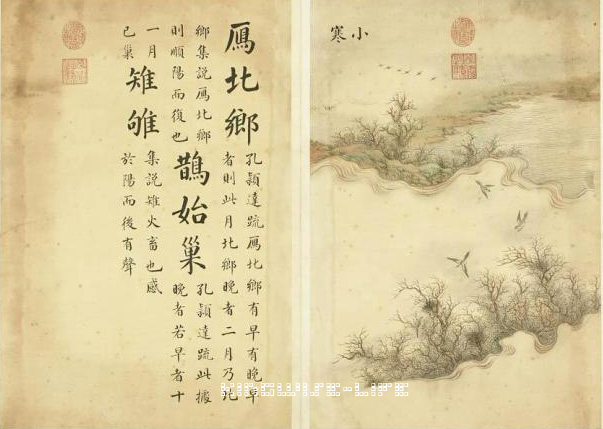 小寒
鴈北鄉
孔穎達疏鴈北鄉有早有晚早
者則此月北鄉晚者二月乃北
鄉集說鴈北鄉
則順陽而復也
鵲始巢
孔穎達疏此據
晚者若早者十
一月
已巢
雉雊
集說雉火畜也感
於陽而後有聲